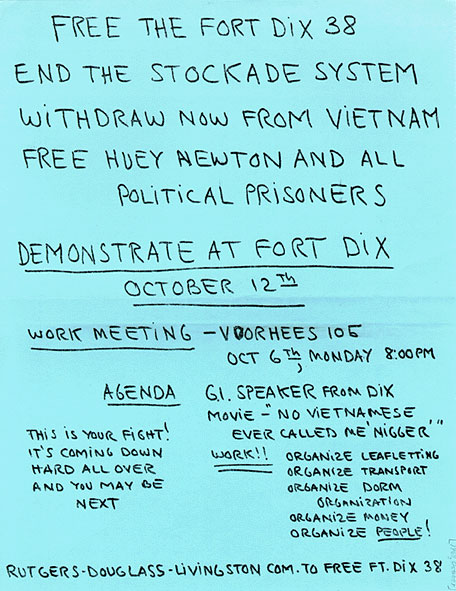 FREE THE FORT DIX 38
END THE STOCKADE SYSTEM
WITHDRAW NOW FROM VIETNAM
FREE HUEY NEWTON AND ALL
POLITICAL PRISONERS
DEMONSTRATE AT FORT DIX
OCTOBER 12Th
WORK MEETING - VOORHEES 105
OCT 6Th, MONDAY 8:00PM
AGENDA
G.I. SPEAKER FROM DIX
MOVIE - "NO VIETNAMESE
EVER CALLED ME 'NIGGER'"
THIS IS YOUR FIGHT!
IT'S COMING DOWN
HARD ALL OVER
AND YOU MAY BE
NEXT
WORK!! ORGANIZE LEAFLETTING
ORGANIZE TRANSPORT
ORGANIZE DORM
ORGANIZATION
ORGANIZE MONEY
ORGANIZE PEOPLE!
RUTGERS-DOUGLASS-LIVINGSTON COM. TO FREE FT. DIX 38